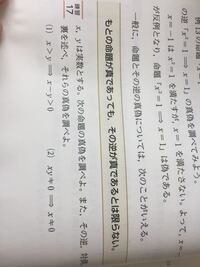 の逆「x²＝1 ⟹ x＝1」の真偽を調べてみよう。
x＝−1 は x²＝1 を満たすが，x＝1 を満たさない。よって，x＝
が反例となり，命題「x²＝1 ⟹ x＝1」は偽である。
一般に，命題とその逆の真偽については，次のことがいえる。
もとの命題が真であっても，その逆が真であるとは限らない。
練習
17
x，y は実数とする。次の命題の真偽を調べよ。また，その逆，対偶，
裏を述べ，それらの真偽を調べよ。
(1) x＞y ⟹ x−y＞0
(2) xy≠0 ⟹ x≠0